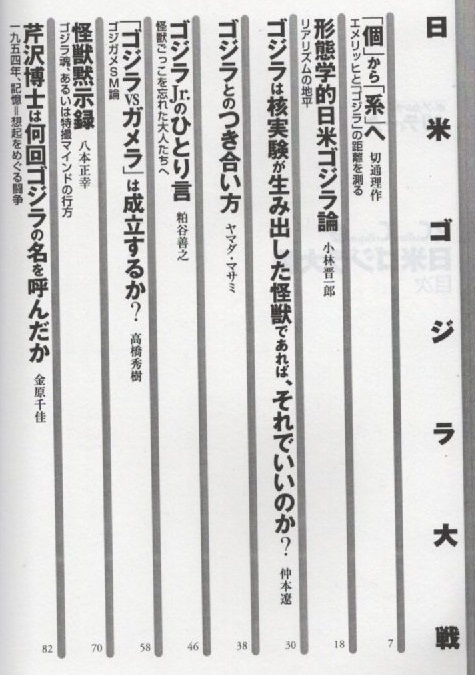 日米ゴジラ大戦
「個」から「系」へ 切通理作
エメリッヒと「ゴジラ」の距離を測る
7
形態学的日米ゴジラ論 小林晋一郎
リアリズムの地平
18
ゴジラは核実験が生み出した怪獣であれば、それでいいのか? 仲本遼
30
ゴジラとのつき合い方 ヤマダ・マサミ
38
ゴジラJr.のひとり言 粕谷善之
怪獣ごっこを忘れた大人たちへ
46
「ゴジラVSガメラ」は成立するか? 高橋秀樹
ゴジガメSM論
58
怪獣黙示録 八本正幸
ゴジラ魂、あるいは特撮マインドの行方
70
芹沢博士は何回ゴジラの名を呼んだか 金原千佳
一九五四年、記憶=想起をめぐる闘争
82